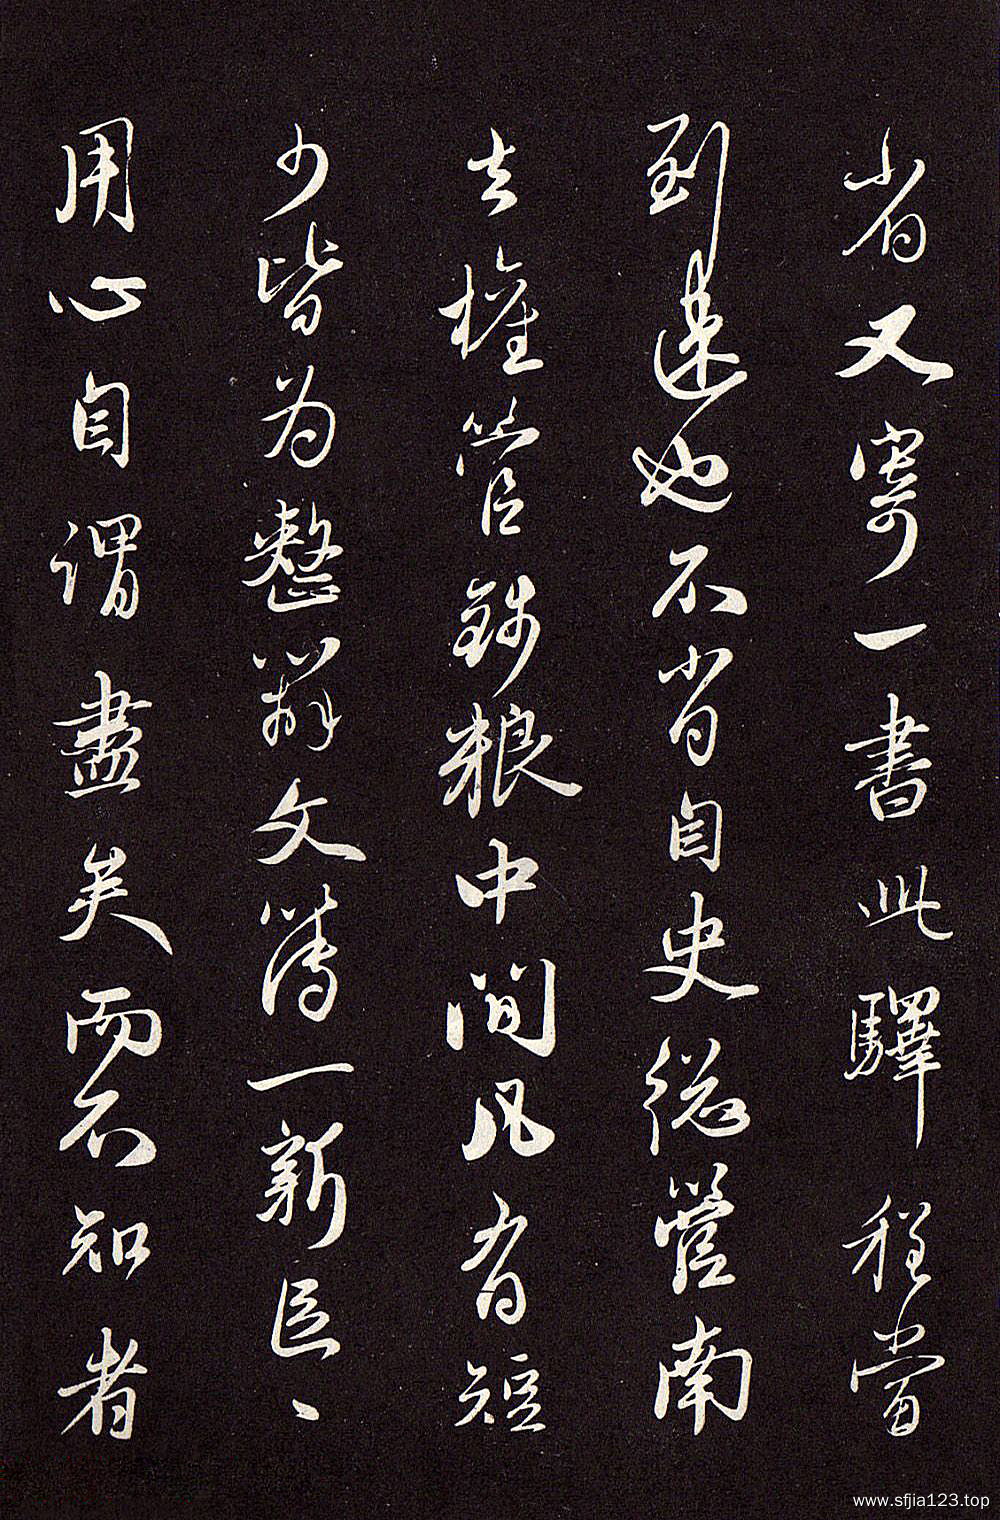 省又寄一書此驛程當
到速也不省自史縂營南
去權管錢粮中間凡有短
少皆为整辦文簿一新臣〻
用心自謂盡矣而不知者
www.sfjia123.top